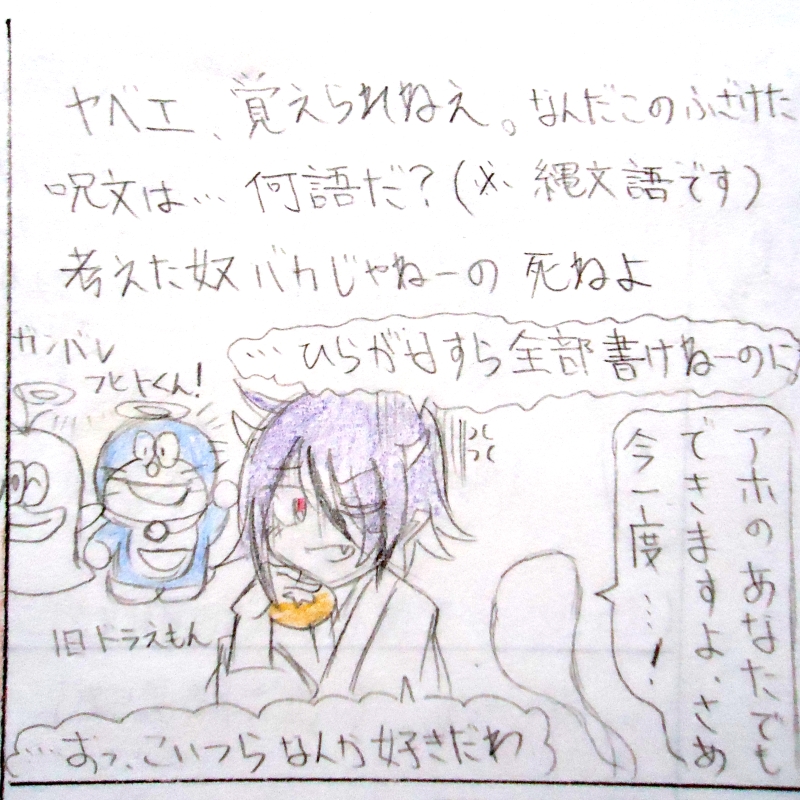 ヤベエ、覚えられねえ。なんだこのふざけた
呪文は…何語だ？(※縄文語です)
考えた奴バカじゃねーの 死ねよ
…ひらがなすら全部書けねーのに
ガンバレ
フヒトくん！
アホのあなたでも
できますよ、さぁ
今一度…！
旧ドラえもん
…おっ、こいつらなんか好きだわ